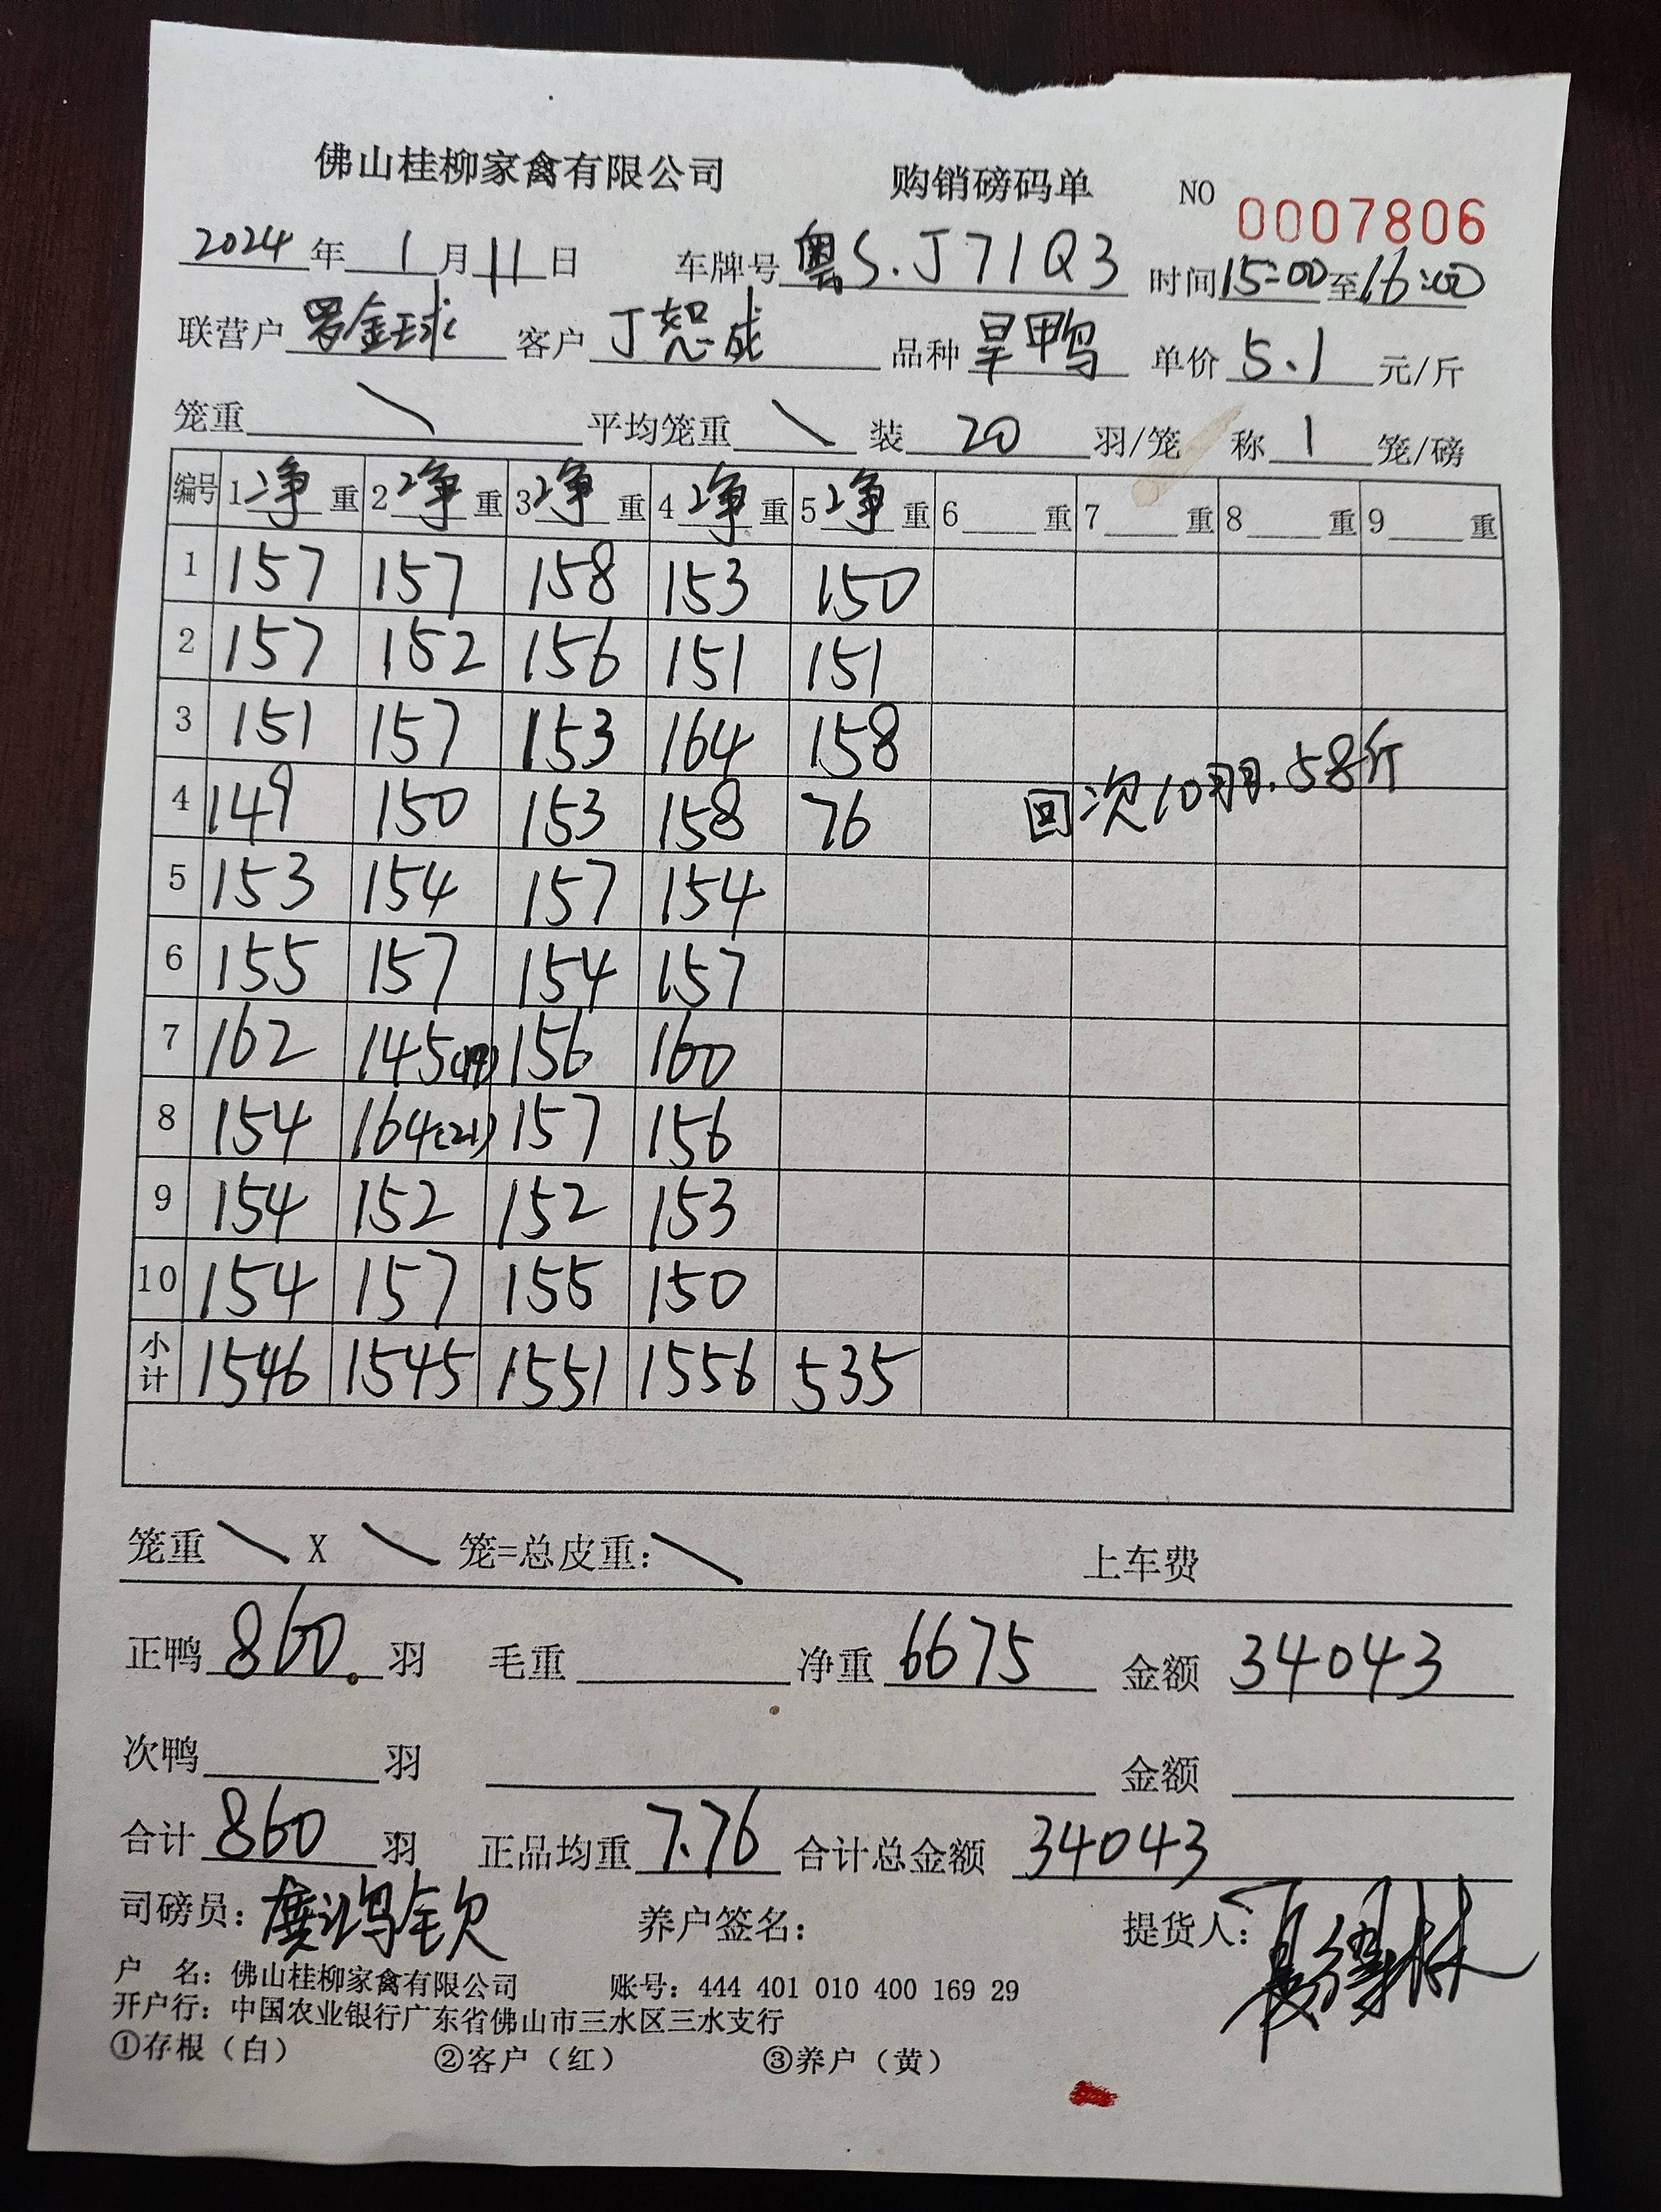 佛山桂柳家禽有限公司 购销磅码单 NO 0007806
2024年1月11日 车牌号 粤S.J71Q3 时间15:00至16:00
联营户 罗金球 客户 丁恕成 品种 旱鸭 单价 5.1 元/斤
笼重 \ 平均笼重 \ 装 20 羽/笼 称 1 笼/磅
编号 1净重 2净重 3净重 4净重 5净重 6重 7重 8重 9重
1 157 157 158 153 150
2 157 152 156 151 151
3 151 157 153 164 158
4 149 150 153 158 76 回次10羽.58斤
5 153 154 157 154
6 155 157 154 157
7 162 145(19) 156 160
8 154 164(21) 157 156
9 154 152 152 153
10 154 157 155 150
小计 1546 1545 1551 1556 535
笼重 \ X \ 笼=总皮重: \ 上车费
正鸭 860. 羽 毛重 净重 6675 金额 34043
次鸭 羽 金额
合计 860 羽 正品均重 7.76 合计总金额 34043
司磅员: 养户签名: 提货人:
户 名: 佛山桂柳家禽有限公司 账号: 444 401 010 400 169 29
开户行: 中国农业银行广东省佛山市三水区三水支行
①存根（白） ②客户（红） ③养户（黄）